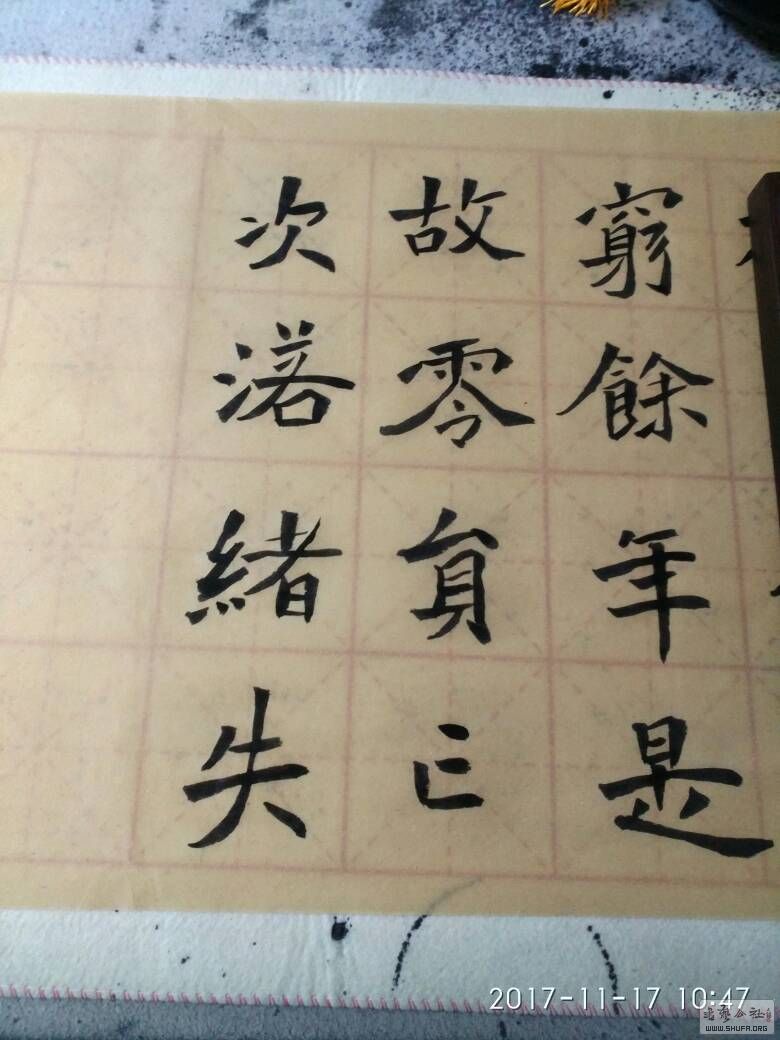 窮餘年是
故零貟亡
次落緒失
2017-11-17 10:47
WWW.SHUFA.ORG